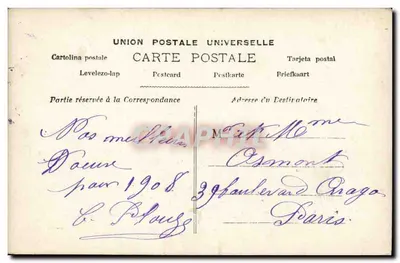 UNION POSTALE UNIVERSELLE
Cartolina postale CARTE POSTALE Tarjeta postal
Levelezo-lap Postcard Postkarte Briefkaart
Partie réservée à la Correspondance
Nos meilleurs
Voeux
pour 1908
Adresse du Destinataire
Mr et Mme
Osmont
39 boulevard Arago
Paris.